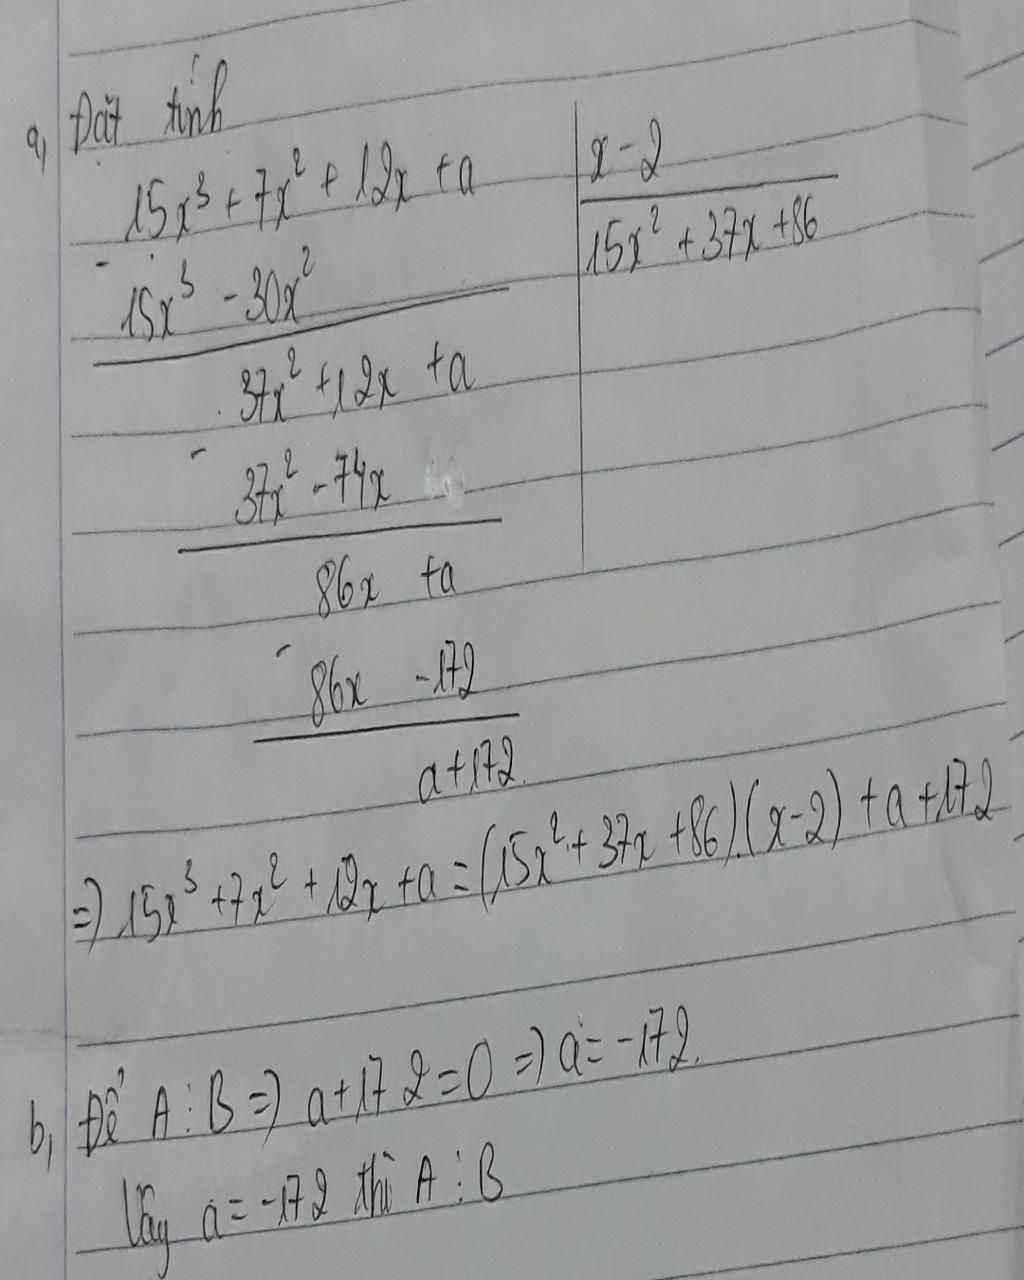 a, Đặt tính
15x³ + 7x² + 12x + a | x - 2
-
15x³ - 30x² | 15x² + 37x + 86
37x² + 12x + a
-
37x² - 74x
86x + a
-
86x - 172
a + 172
=> 15x³ + 7x² + 12x + a = (15x² + 37x + 86).(x - 2) + a + 172
b, Để A ⋮ B => a + 172 = 0 => a = -172.
Vậy a = -172 thì A ⋮ B